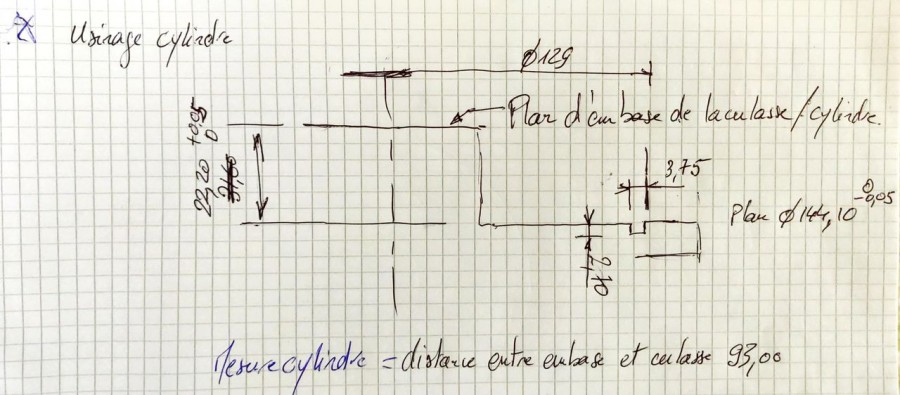 Usinage cylindre
Ø129
Plan d'embase de la culasse/cylindre.
22,20 +0,05 0
3,75
Plan Ø144,10 0 -0,05
2,70
Mesure cylindre = distance entre embase et culasse 93,00